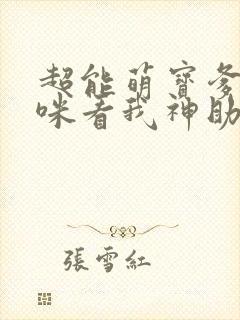 超能萌寶爹
咪看我神助
張雪紅